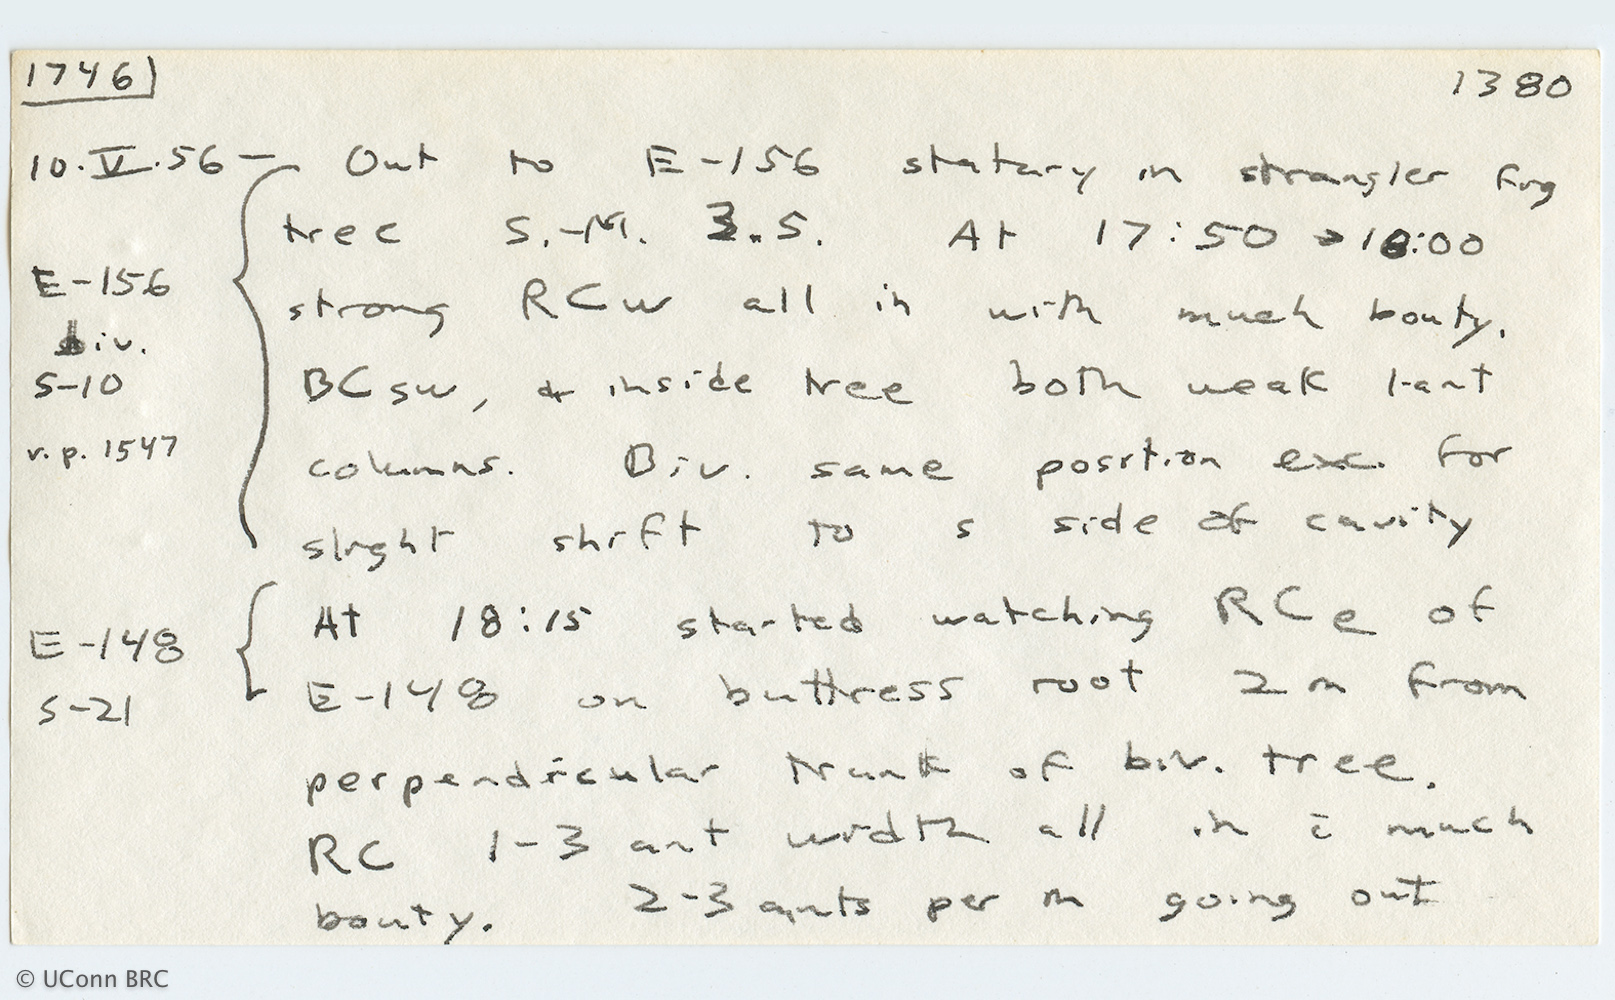 1746
1380
10.V.56 — Out to E-156 statary in strangler fig
tree S.-M. 3.5. At 17:50 → 18:00
strong RCw all in with much bouty.
BCsw, & inside tree both weak 1-ant
columns. Biv. same position exc. for
slight shift to s side of cavity
E-156
biv.
S-10
v.p. 1547
At 18:15 started watching RCe of
E-148 on buttress root 2 m from
perpendicular trunk of biv. tree.
RC 1-3 ant width all in c̄ much
bouty. 2-3 ants per m going out
E-148
S-21
© UConn BRC